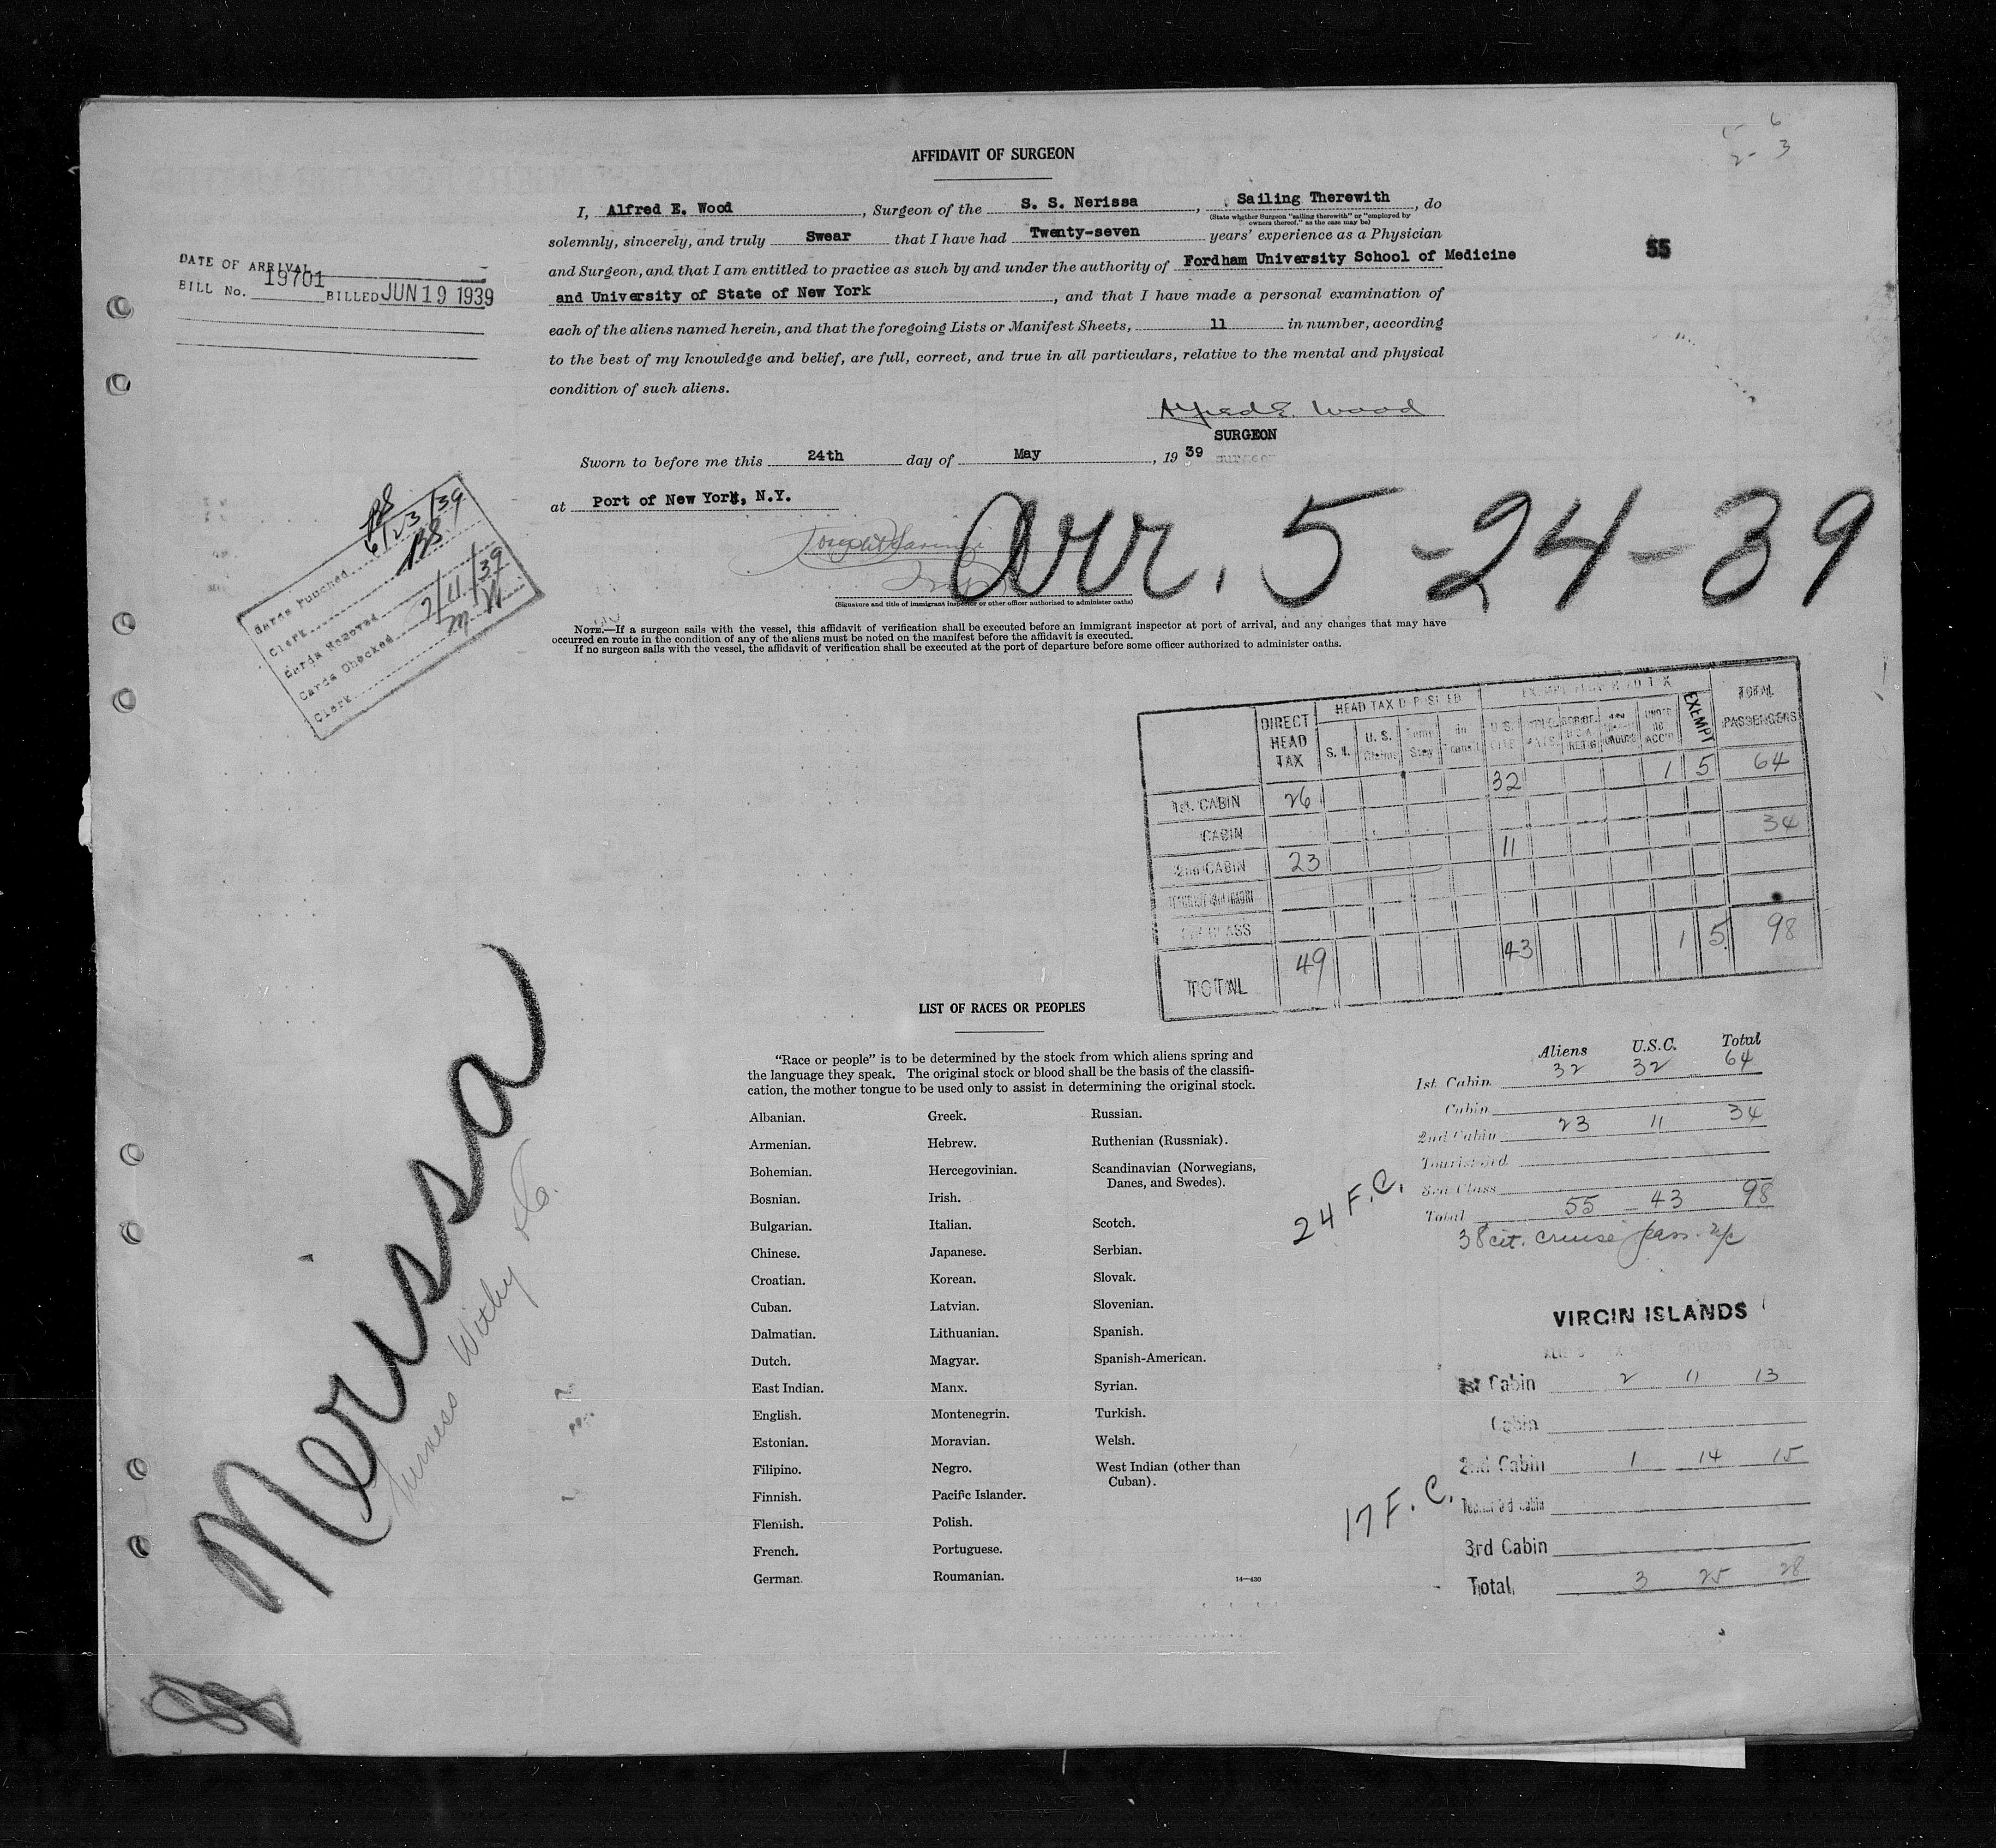 AFFIDAVIT OF SURGEON
I, Alfred E. Wood, Surgeon of the S. S. Nerissa, Sailing Therewith, do
(State whether Surgeon "sailing therewith" or "employed by
owners thereof," as the case may be)
solemnly, sincerely, and truly Swear that I have had Twenty-seven years' experience as a Physician
and Surgeon, and that I am entitled to practice as such by and under the authority of Fordham University School of Medicine
and University of State of New York, and that I have made a personal examination of
each of the aliens named herein, and that the foregoing Lists or Manifest Sheets, 11 in number, according
to the best of my knowledge and belief, are full, correct, and true in all particulars, relative to the mental and physical
condition of such aliens.
55
DATE OF ARRIVAL
19701
BILL No. BILLED JUN 19 1939
Alfred E. Wood
SURGEON
Sworn to before me this 24th day of May, 1939
at Port of New York, N.Y.
Arr. 5-24-39
(Signature and title of immigrant inspector or other officer authorized to administer oaths)
NOTE.—If a surgeon sails with the vessel, this affidavit of verification shall be executed before an immigrant inspector at port of arrival, and any changes that may have
occurred en route in the condition of any of the aliens must be noted on the manifest before the affidavit is executed.
If no surgeon sails with the vessel, the affidavit of verification shall be executed at the port of departure before some officer authorized to administer oaths.
Cards Punched 6/23/39
Clerk
Cards Removed
Cards Checked 7/11/39
Clerk
DIRECT HEAD TAX
HEAD TAX DEPOSITED
S. I.
U. S.
Temp Stay
In Transit
U. S. CITS
EXEMPT
TOTAL PASSENGERS
1st. CABIN 26 32 1 5 64
CABIN
2nd CABIN 23 11 34
3rd CLASS
TOTAL 49 43 1 5 98
LIST OF RACES OR PEOPLES
"Race or people" is to be determined by the stock from which aliens spring and
the language they speak. The original stock or blood shall be the basis of the classifi-
cation, the mother tongue to be used only to assist in determining the original stock.
Albanian.
Armenian.
Bohemian.
Bosnian.
Bulgarian.
Chinese.
Croatian.
Cuban.
Dalmatian.
Dutch.
East Indian.
English.
Estonian.
Filipino.
Finnish.
Flemish.
French.
German.
Greek.
Hebrew.
Hercegovinian.
Irish.
Italian.
Japanese.
Korean.
Latvian.
Lithuanian.
Magyar.
Manx.
Montenegrin.
Moravian.
Negro.
Pacific Islander.
Polish.
Portuguese.
Roumanian.
Russian.
Ruthenian (Russniak).
Scandinavian (Norwegians,
Danes, and Swedes).
Scotch.
Serbian.
Slovak.
Slovenian.
Spanish.
Spanish-American.
Syrian.
Turkish.
Welsh.
West Indian (other than
Cuban).
14—430
Aliens U.S.C. Total
1st. Cabin 32 32 64
Cabin
2nd Cabin 23 11 34
Tourist 3rd
3rd Class
Total 55 43 98
24 F.C.
38 cit. cruise pass.
VIRGIN ISLANDS
1st Cabin 2 11 13
Cabin
2nd Cabin 1 14 15
17 F.C.
3rd Cabin
Total 3 25 28
Nerissa
Furness Withy & Co.